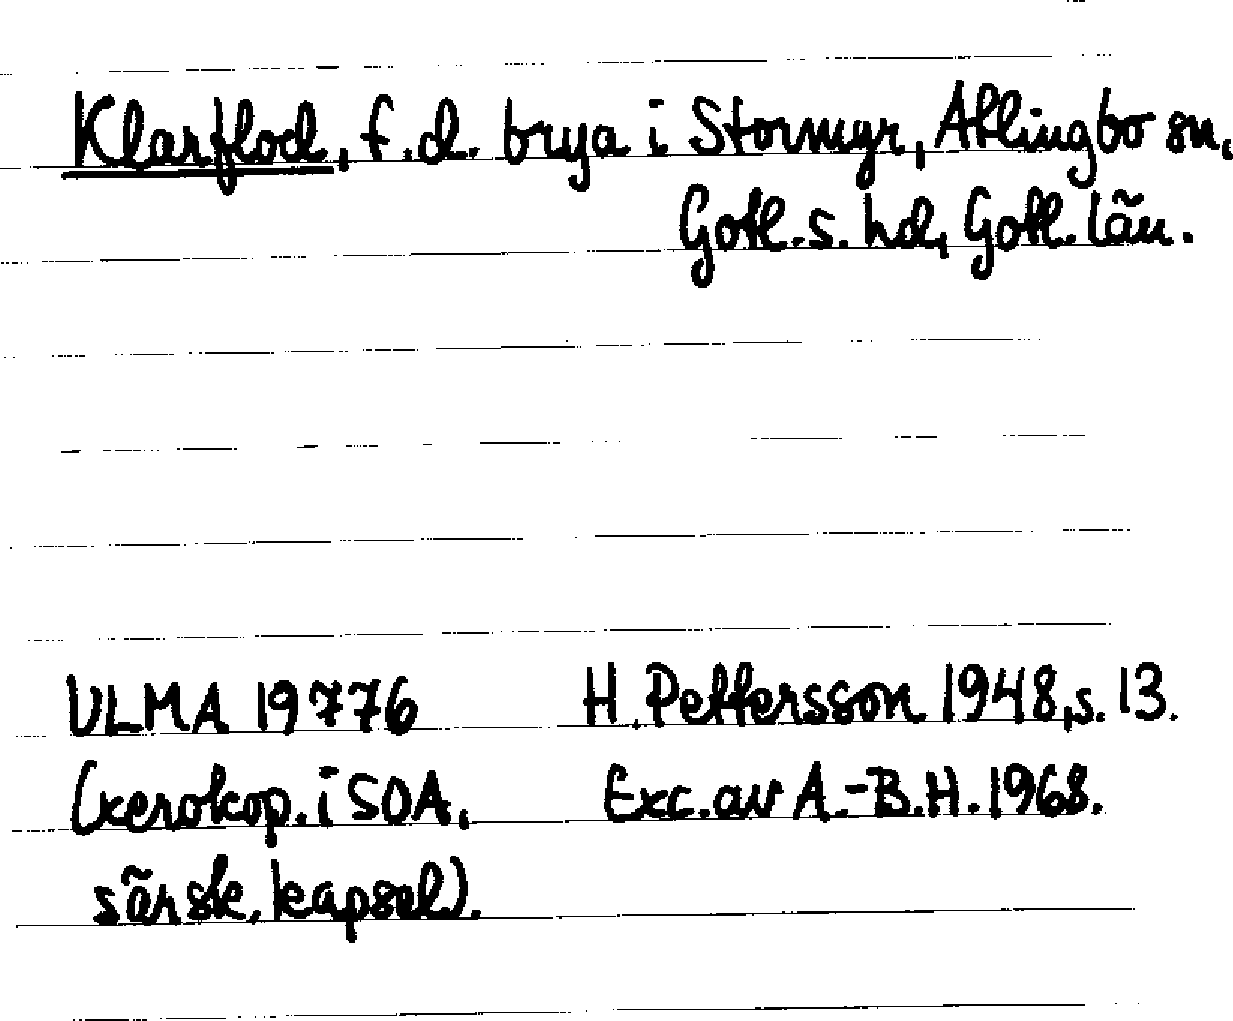 Klarflod, f.d. brya i Stormyr, Atlingbo sn,
Gotl. s. hd, Gotl. län.
ULMA 19776 H. Pettersson 1948, s. 13.
(xerokop. i SOA, Exc. av A.-B.H. 1968.
särsk. kapsel).